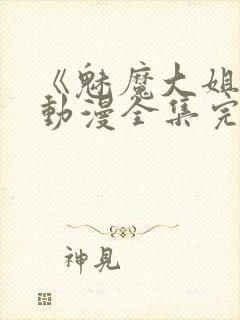 《魅魔大姐
动漫全集完
神见